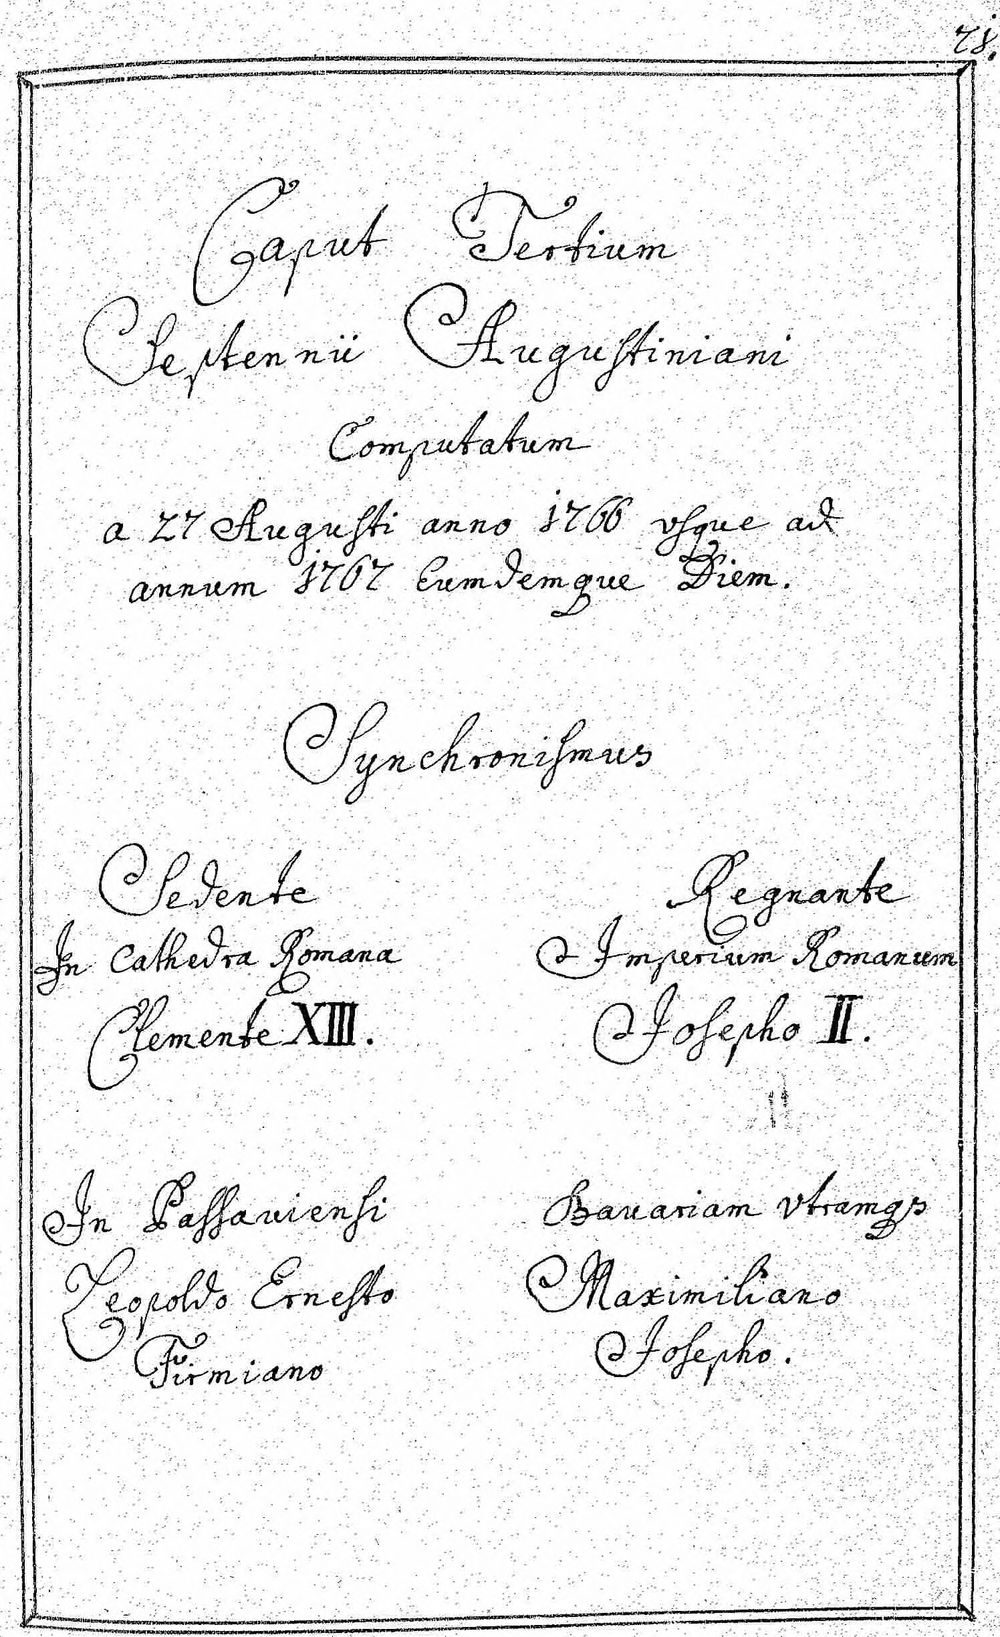 Caput Tertium
Septennii Augustiniani
Computatum
a 27 Augusti anno 1766 vsque ad
annum 1767 Eumdemque Diem.
Synchronismus
Sedente
In Cathedra Romana
Clemente XIII.
In Passauiensi
Leopoldo Ernesto
Firmiano
Regnante
Imperium Romanum
Josepho II.
Bauariam vtramq3
Maximiliano
Josepho.